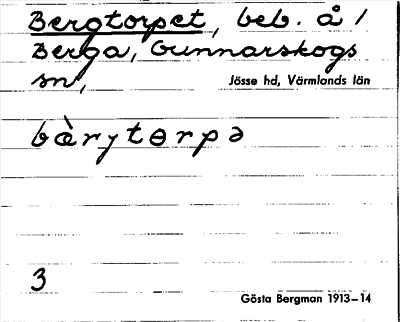 Bergtorpet, beb. å /
Berga, Gunnarskogs
sn,
Jösse hd, Värmlands län
bàrytɵrpə
3
Gösta Bergman 1913–14